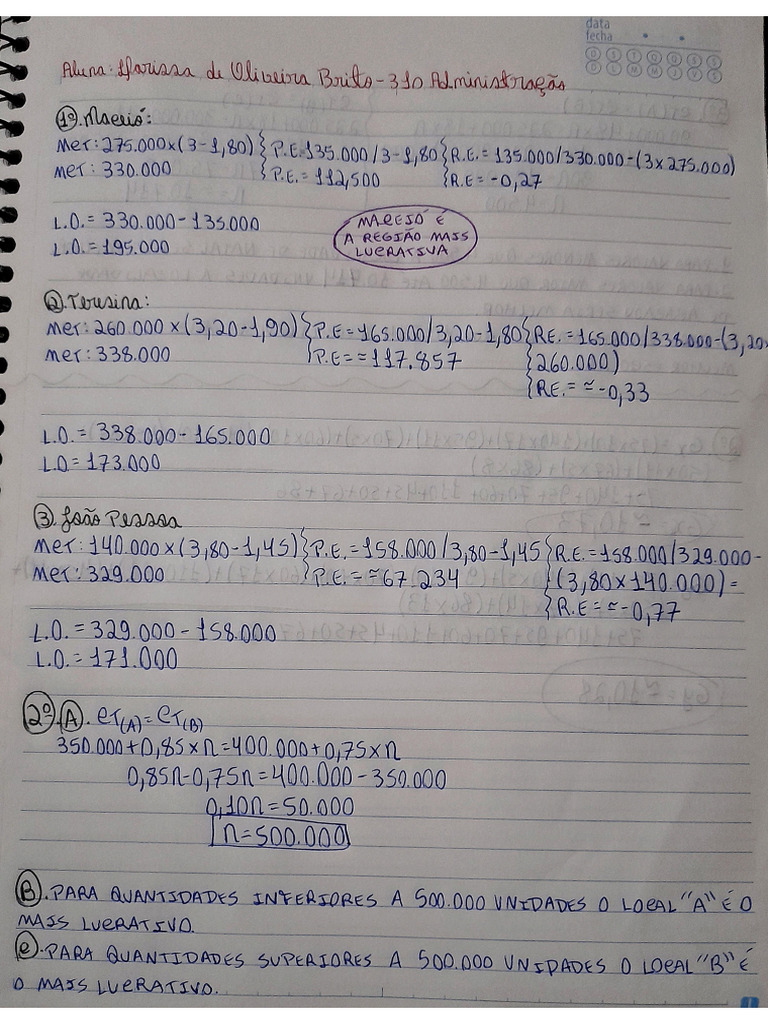 data
fecha
D S T Q Q S S
D L M M J V S
Aluna: Larissa de Oliveira Brito - 310 Administração
1º. Maceió:
MCT: 275.000 x (3 - 1,80) { P.E = 135.000 / 3 - 1,80 { R.E. = 135.000 / 330.000 - (3 x 275.000)
MCT: 330.000 { P.E. = 112,500 R.E = -0,27
L.O. = 330.000 - 135.000
L.O. = 195.000
MACEIÓ É
A REGIÃO MAIS
LUCRATIVA
2. Teresina:
MCT: 260.000 x (3,20 - 1,90) { P.E = 165.000 / 3,20 - 1,80 { RE. = 165.000 / 338.000 - (3,20x
MCT: 338.000 { P.E = ≃ 117.857 { 260.000)
{ RE. = ≃ -0,33
L.O. = 338.000 - 165.000
L.O = 173.000
3. João Pessoa
MCT: 140.000 x (3,80 - 1,45) { P.E. = 158.000 / 3,80 - 1,45 { R.E. = 158.000 / 329.000 -
MCT: 329.000 { P.E. = ≃ 67.234 { (3,80 x 140.000) =
{ R.E = ≃ -0,77
L.O. = 329.000 - 158.000
L.O. = 171.000
2º. A. CT(A) = CT(B)
350.000 + 0,85 x n = 400.000 + 0,75 x n
0,85n - 0,75n = 400.000 - 350.000
0,10n = 50.000
n = 500.000
B. PARA QUANTIDADES INFERIORES A 500.000 UNIDADES O LOCAL "A" É O
MAIS LUCRATIVO.
C. PARA QUANTIDADES SUPERIORES A 500.000 UNIDADES O LOCAL "B" É
O MAIS LUCRATIVO.